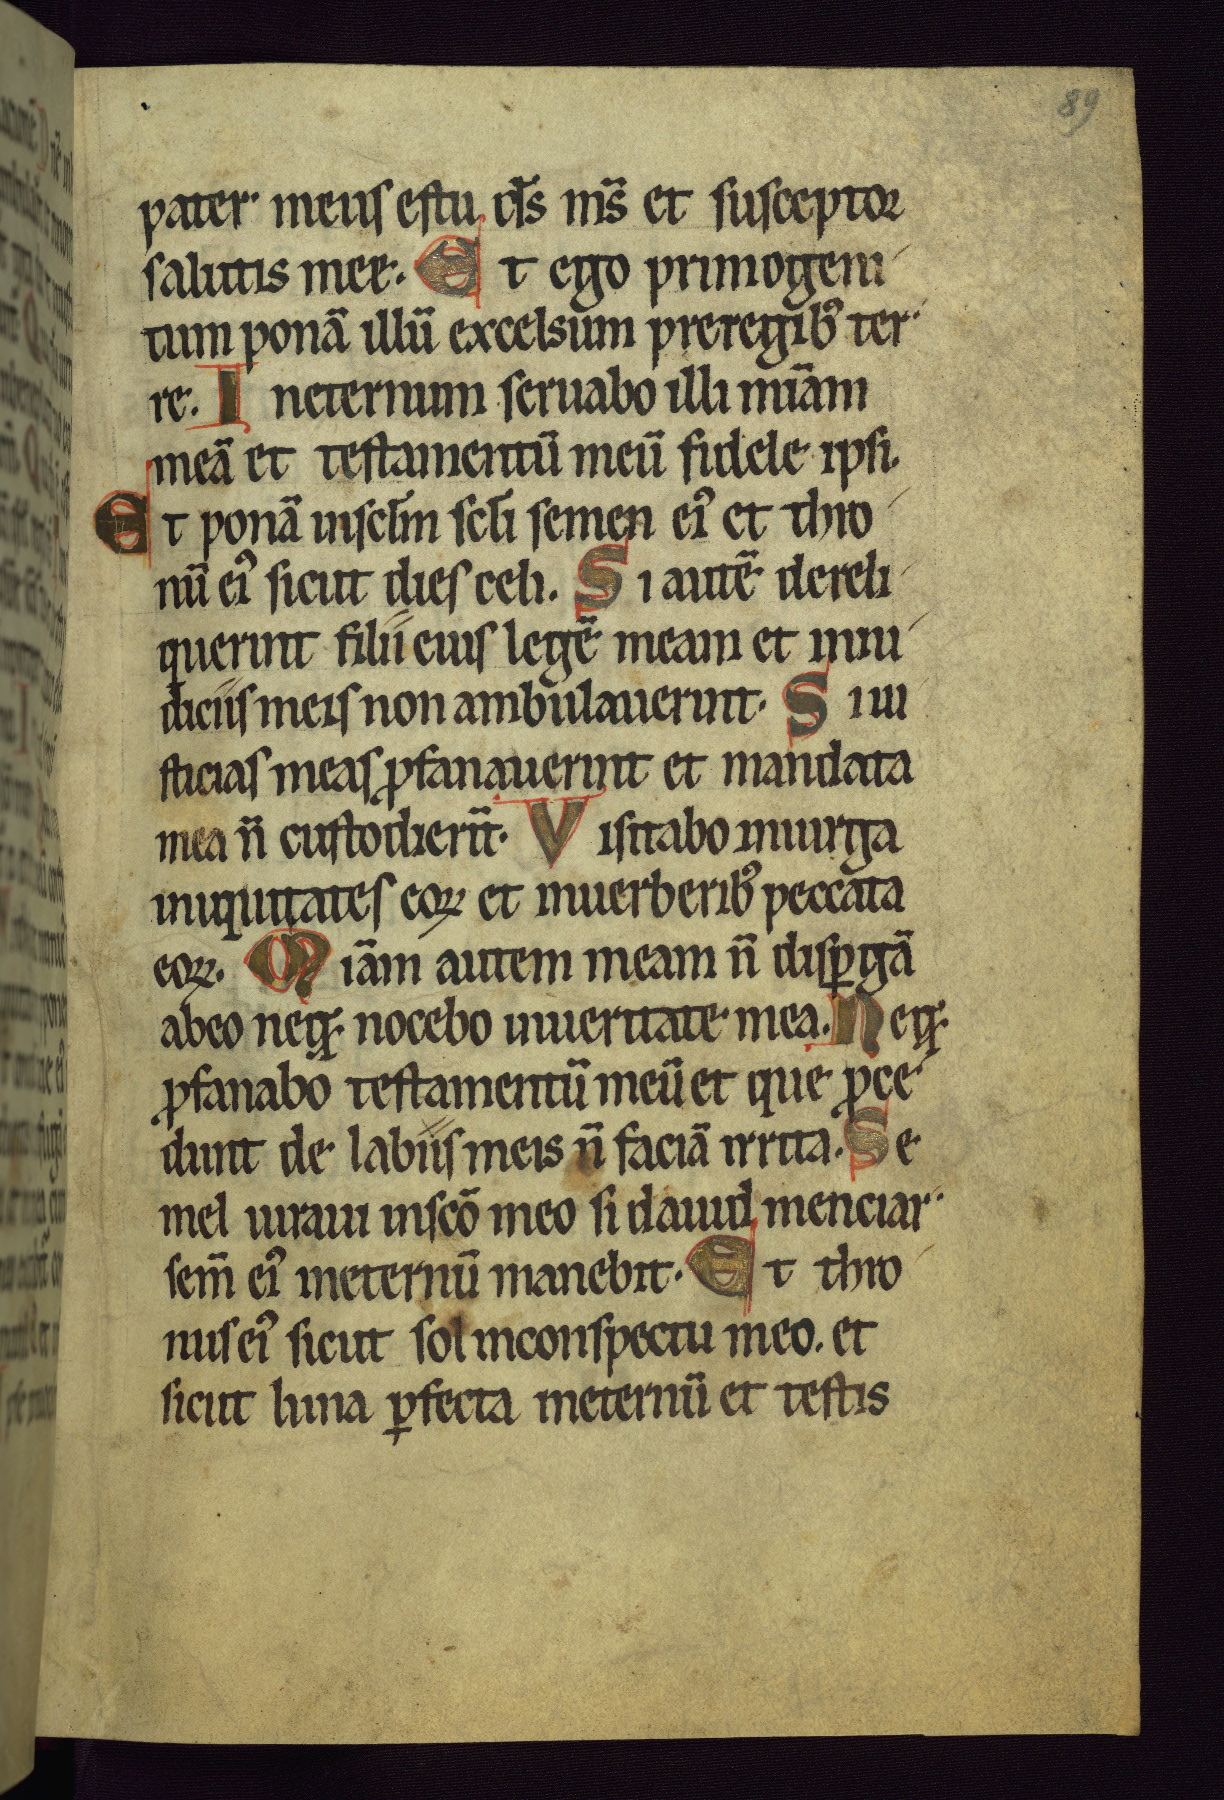 89
pater meus estu ds̄ ms̄ et susceptor
salutis mee. Et ego primogeni
tum ponā illū excelsum preregib᷒ ter
re. Ineternum seruabo illi mīam
meā et testamentū meū fidele ipsi.
Et ponā insclm̄ scl̄i semen ei᷒ et thro
nū ei᷒ sicut dies celi. Si autē dereli
querint filii eius legē meam et iniu
diciis meis non ambulauerint. Si iu
sticias meas ꝓfanauerint et mandata
mea n̄ custodierīt. Visitabo inuirga
iniquitates eoꝝ et inuerberib᷒ peccata
eoꝝ. Mīam autem meam n̄ dispgā
abeo neqꝫ nocebo inueritate mea. Neqꝫ
ꝓfanabo testamentū meū et que ꝓce
dunt de labiis meis n̄ faciā irrita. Se
mel iuraui inscō meo si dauid menciar
sem̄ ei᷒ ineternū manebit. Et thro
nus ei᷒ sicut sol inconspectu meo. et
sicut luna ꝑfecta ineternū et testis